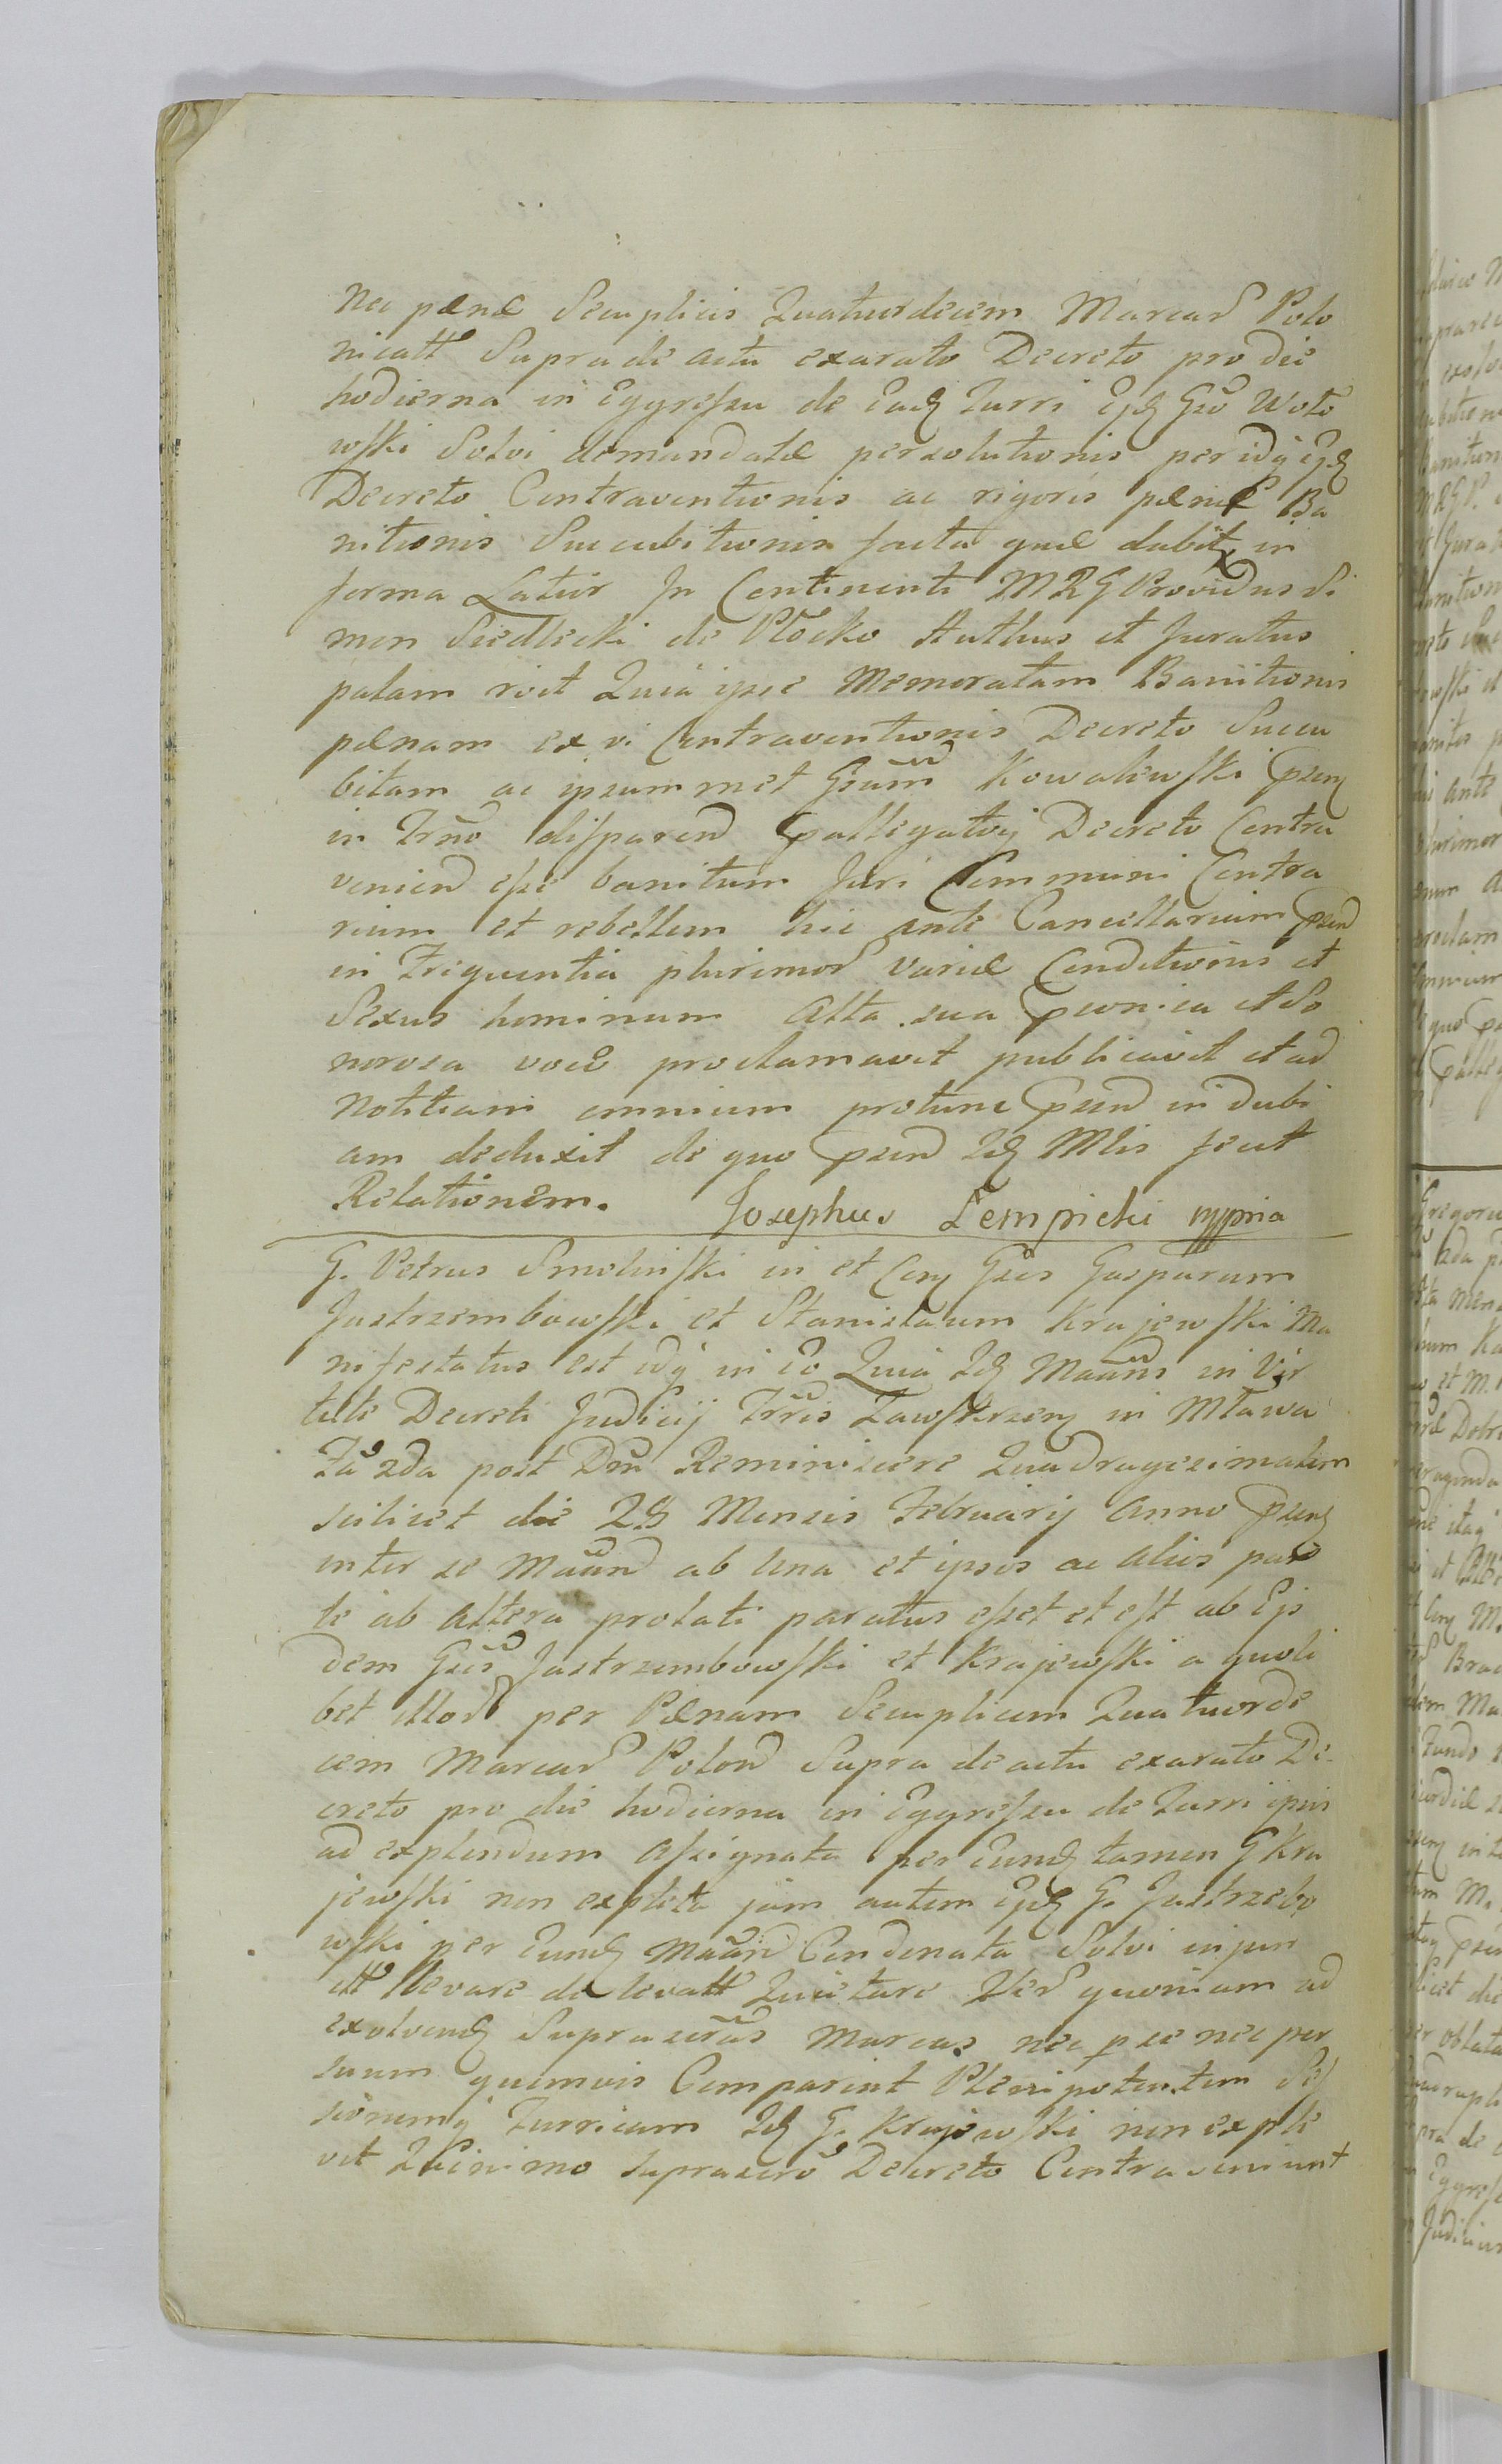 nec pænæ Semplicis Quatuordecem Marcar Polo
nicall Supra de actu exarato Decreto pro die
hodierna in Eggressu de Eadȝ Turri Ejdȝ Gso Woło
wski Solvi demandatæ persolutionis per idq̨ ejdȝ
Decreto Contraventionis ac rigoris pænæ Ba
nitionis Succubitionis facta quæ dubit in
forma Latior In Continenti MRG Providus Si
mon Siedlecki de Płocko Authus et Juratus
palam roit Quia ipse Memoratam Banitionis
pænam ex vi Contraventionis Decreto Succu
bitam ac ipsummet Gsum Kowalewski psenȝ
in Trno disparend pallegatoq̨ Decreto Contra
veniend esse banitum Juri Communi Contra
rium et rebellem hic ante Cancellarium psend
in Friquentia plurimor variæ Conditionis et
Sexus hominum Alta sua pconica et So
norosa voce proclamavit publicavit et ad
Notitiam omnium protunc psend indubi
am deduxit de quo psend Idȝ Mlis fecit
Relationem. Josephus Łempicki mppria
G. Petrus Smoliński in et Conȝ Gsos Gasparum
Jastrzembowski et Stanisłaum Krajewski Ma
nifestatus est idq̨ in Eo Quia Idȝ Maans in Vir
tute Decreti Judicij Trris Zawskrzenȝ in Mława
Fa 2da post Dm Reminiscere Quadragesimalem
scilicet die 28 Mensis Februarij Anno psenȝ
inter se Maand ab Una et ipsos ac alios par
te ab altera prolati paratus esset et est ab Ejs
dem Gsis Jastrzembowski et Krajewski a quoli
bet illor per Pænam Semplicem Quatuorde
cem Marcar Polond Supra de actu exarato De
creto pro die hodierna in Eggressu de Turri ipsis
ad explendum Assignata per Eundȝ tamen G Kra
jewski non expleta jam autem Ejdȝ G. Jastrzebo
wski per Eundȝ Maand Condonata Solvi injun
ctt levare de levatt Quietare Ver quoniam ad
exolvendȝ Suprascrãs Marcas nec p se nec per
suum quemvis Comparint Plenipotentem Ses
sionemq̨ Turricam Idȝ G. Krajewski non exple
vit Quinimo suprascro Decreto Contraveniunt